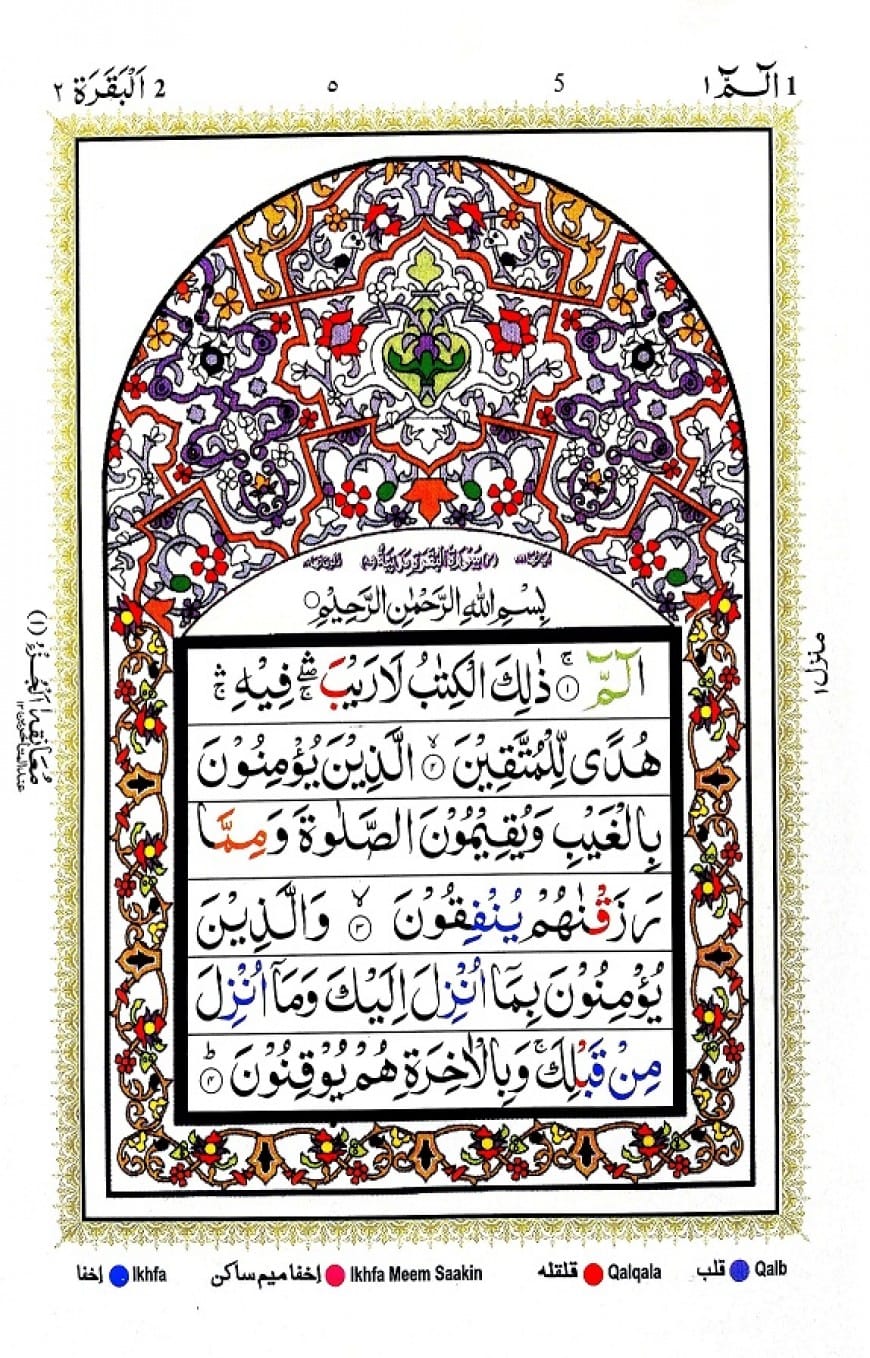 1 الٓـمّٓ ١
5
٥
2 اَلْبَقَرَة ٢
بِسْمِ اللّٰهِ الرَّحْمٰنِ الرَّحِيْمِ
الٓمّٓ ۚ﴿١﴾ ذٰلِكَ الْكِتٰبُ لَا رَيْبَ ۛۖۚ فِيْهِ ۛۚ
هُدًى لِّلْمُتَّقِيْنَ ۙ﴿٢﴾ الَّذِيْنَ يُؤْمِنُوْنَ
بِالْغَيْبِ وَيُقِيْمُوْنَ الصَّلٰوةَ وَمِمَّا
رَزَقْنٰهُمْ يُنْفِقُوْنَ ۙ﴿٣﴾ وَالَّذِيْنَ
يُؤْمِنُوْنَ بِمَاۤ اُنْزِلَ اِلَيْكَ وَمَاۤ اُنْزِلَ
مِنْ قَبْلِكَ ۚ وَبِالْاٰخِرَةِ هُمْ يُوْقِنُوْنَ ؕ﴿٤﴾
منزل ١
Qalb قلب
Qalqala قلقله
Ikhfa Meem Saakin إخفا میم ساکن
Ikhfa إخفا